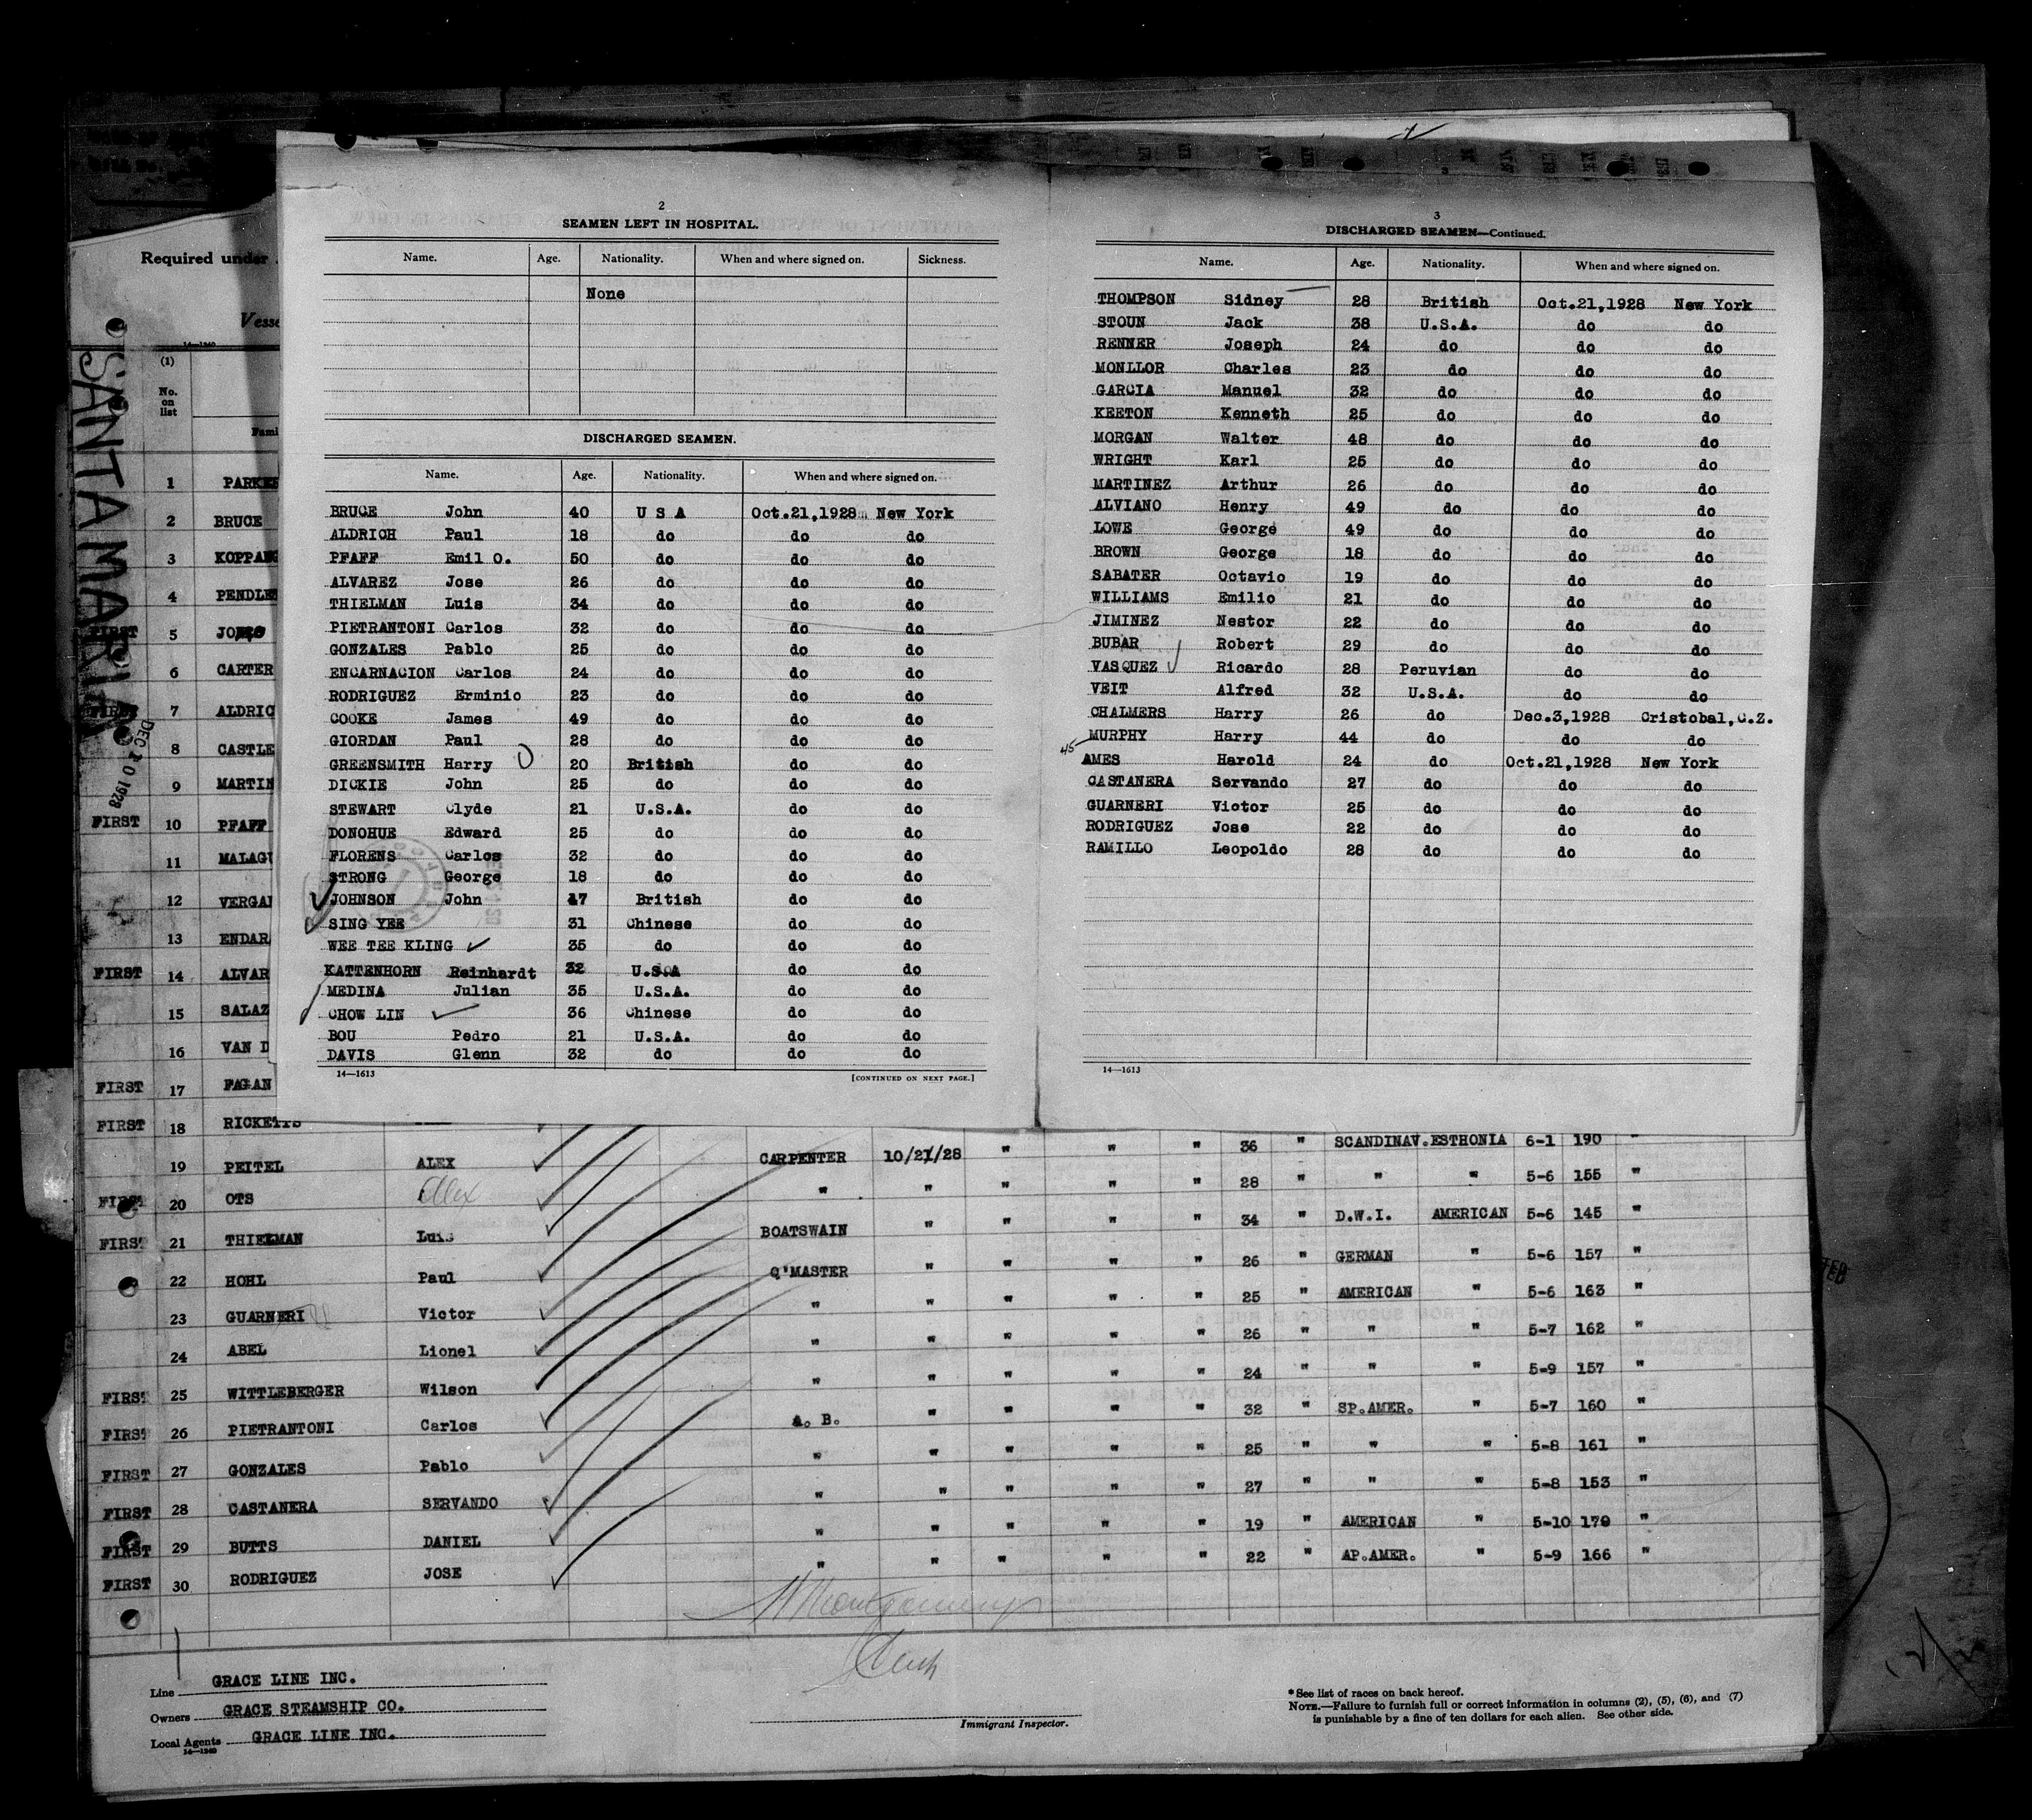 Required under
Vesse
14—1240
SANTA MARIA
DEC 20 1928
(1)
No. on list
Fami
1 PARKE
2 BRUCE
3 KOPPANG
4 PENDLE
FIRST 5 JO
6 CARTER
FIRST 7 ALDRIC
8 CASTLE
9 MARTIN
FIRST 10 PFAFF
11 MALAGU
12 VERGA
13 ENDAR
FIRST 14 ALVAR
15 SALAZ
16 VAN D
FIRST 17 FAGAN
FIRST 18 RICKETTS
2
SEAMEN LEFT IN HOSPITAL.
Name. Age. Nationality. When and where signed on. Sickness.
None
DISCHARGED SEAMEN.
Name. Age. Nationality. When and where signed on.
BRUCE John 40 U S A Oct.21,1928 New York
ALDRICH Paul 18 do do do
PFAFF Emil O. 50 do do do
ALVAREZ Jose 26 do do do
THIELMAN Luis 34 do do do
PIETRANTONI Carlos 32 do do do
GONZALES Pablo 25 do do do
ENCARNACION Carlos 24 do do do
RODRIGUEZ Erminio 23 do do do
COOKE James 49 do do do
GIORDAN Paul 28 do do do
GREENSMITH Harry 20 British do do
DICKIE John 25 do do do
STEWART Clyde 21 U.S.A. do do
DONOHUE Edward 25 do do do
FLORENS Carlos 32 do do do
STRONG George 18 do do do
JOHNSON John 17 British do do
SING YEE 31 Chinese do do
WEE TEE KLING 35 do do do
KATTENHORN Reinhardt 32 U.S.A do do
MEDINA Julian 35 U.S.A. do do
CHOW LIN 36 Chinese do do
BOU Pedro 21 U.S.A. do do
DAVIS Glenn 32 do do do
14—1613 [CONTINUED ON NEXT PAGE.]
3
DISCHARGED SEAMEN—Continued.
Name. Age. Nationality. When and where signed on.
THOMPSON Sidney 28 British Oct.21,1928 New York
STOUN Jack 38 U.S.A. do do
RENNER Joseph 24 do do do
MONLLOR Charles 23 do do do
GARCIA Manuel 32 do do do
KEETON Kenneth 25 do do do
MORGAN Walter 48 do do do
WRIGHT Karl 25 do do do
MARTINEZ Arthur 26 do do do
ALVIANO Henry 49 do do do
LOWE George 49 do do do
BROWN George 18 do do do
SABATER Octavio 19 do do do
WILLIAMS Emilio 21 do do do
JIMINEZ Nestor 22 do do do
BUBAR Robert 29 do do do
VASQUEZ Ricardo 28 Peruvian do do
VEIT Alfred 32 U.S.A. do do
CHALMERS Harry 26 do Dec.3,1928 Cristobal,C.Z.
MURPHY Harry 44 do do do
45 AMES Harold 24 do Oct.21,1928 New York
CASTANERA Servando 27 do do do
GUARNERI Victor 25 do do do
RODRIGUEZ Jose 22 do do do
RAMILLO Leopoldo 28 do do do
14—1613
19 PEITEL ALEX CARPENTER 10/21/28 " " " 36 " SCANDINAV. ESTHONIA 6-1 190 "
FIRST 20 OTS Alex " " " " " 28 " " " 5-6 155 "
FIRST 21 THIELMAN Luis BOATSWAIN " " " " 34 " D.W.I. AMERICAN 5-6 145 "
22 HOHL Paul Q'MASTER " " " " 26 " GERMAN " 5-6 157 "
23 GUARNERI Victor " " " " " 25 " AMERICAN " 5-6 163 "
24 ABEL Lionel " " " " " 26 " " " 5-7 162 "
FIRST 25 WITTLEBERGER Wilson " " " " " 24 " " " 5-9 157 "
FIRST 26 PIETRANTONI Carlos A. B. " " " " 32 " SP.AMER. " 5-7 160 "
FIRST 27 GONZALES Pablo " " " " " 25 " " " 5-8 161 "
FIRST 28 CASTANERA SERVANDO " " " " " 27 " " " 5-8 153 "
FIRST 29 BUTTS DANIEL " " " " " 19 " AMERICAN " 5-10 170 "
FIRST 30 RODRIGUEZ JOSE " " " " " 22 " AP.AMER. " 5-9 166 "
Montgomery
Clerk
Immigrant Inspector.
Line GRACE LINE INC.
Owners GRACE STEAMSHIP CO.
Local Agents GRACE LINE INC.
14—1240
* See list of races on back hereof.
NOTE.—Failure to furnish full or correct information in columns (2), (5), (6), and (7)
is punishable by a fine of ten dollars for each alien. See other side.